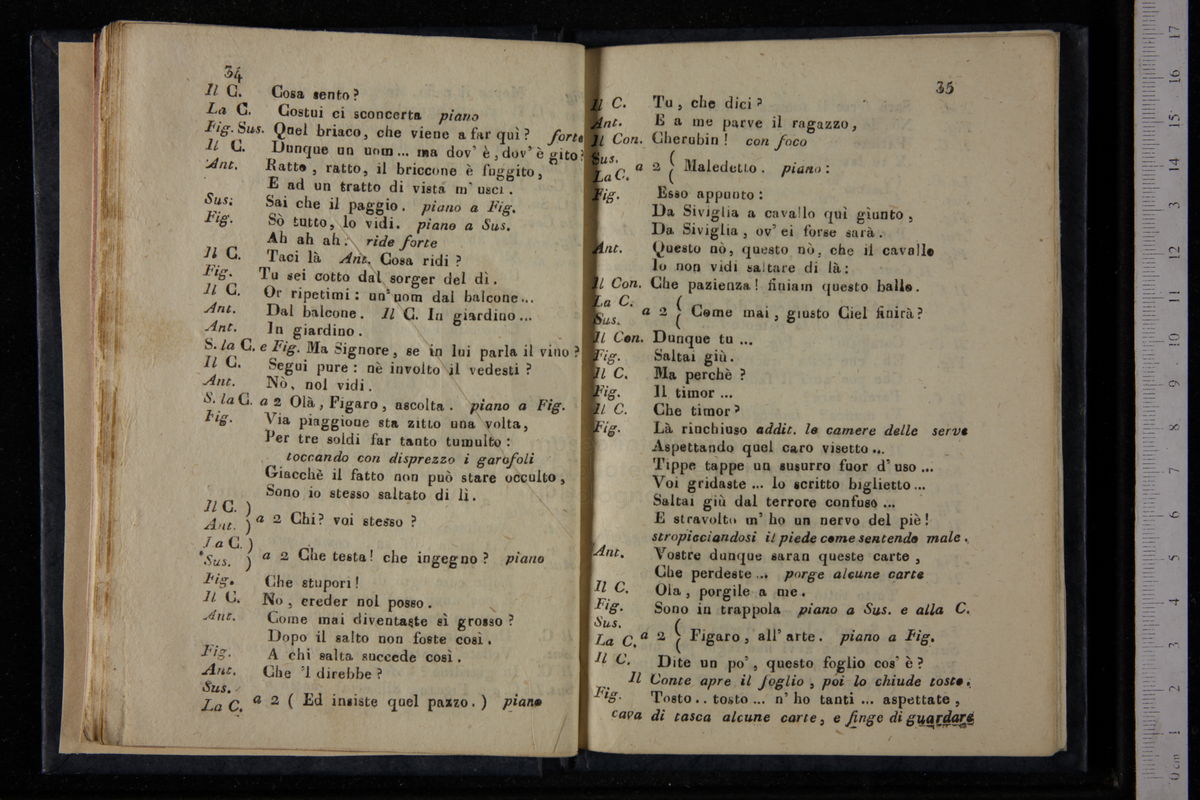 34
Il C. Cosa sento?
La C. Costui ci sconcerta piano
Fig. Sus. Quel briaco, che viene a far quì? forte
Il C. Dunque un uom... ma dov' è, dov' è gito?
Ant. Ratto, ratto, il briccone è fuggito,
E ad un tratto di vista m' uscì.
Sus. Sai che il paggio. piano a Fig.
Fig. Sò tutto, lo vidi. piano a Sus.
Ah ah ah. ride forte
Il C. Taci là Ant. Cosa ridi?
Fig. Tu sei cotto dal sorger del dì.
Il C. Or ripetimi: un' uom dal balcone...
Ant. Dal balcone. Il C. In giardino...
Ant. In giardino.
S. la C. e Fig. Ma Signore, se in lui parla il vino?
Il C. Segui pure: nè involto il vedesti?
Ant. Nò, nol vidi.
S. la C. a 2 Olà, Figaro, ascolta. piano a Fig.
Fig. Via piaggione sta zitto una volta,
Per tre soldi far tanto tumulto:
toccando con disprezzo i garofoli
Giacchè il fatto non può stare occulto,
Sono io stesso saltato di lì.
Il C. )
Ant. ) a 2 Chi? voi stesso?
La C. )
Sus. ) a 2 Che testa! che ingegno? piano
Fig. Che stupori!
Il C. No, creder nol posso.
Ant. Come mai diventaste sì grosso?
Dopo il salto non foste così.
Fig. A chi salta succede così.
Ant. Che 'l direbbe?
Sus.
La C. a 2 ( Ed insiste quel pazzo. ) piano
35
Il C. Tu, che dici?
Ant. E a me parve il ragazzo,
Il Con. Cherubin! con foco
Sus.
La C. a 2 ( Maledetto. piano:
Fig. Esso appunto:
Da Siviglia a cavallo quì giunto,
Da Siviglia, ov' ei forse sarà.
Ant. Questo nò, questo nò, che il cavallo
Io non vidi saltare di là:
Il Con. Che pazienza! finiam questo ballo.
La C.
Sus. a 2 ( Come mai, giusto Ciel finirà?
Il Con. Dunque tu ...
Fig. Saltai giù.
Il C. Ma perchè?
Fig. Il timor ...
Il C. Che timor?
Fig. Là rinchiuso addit. le camere delle serve
Aspettando quel caro visetto ...
Tippe tappe un susurro fuor d' uso ...
Voi gridaste ... lo scritto biglietto ...
Saltai giù dal terrore confuso ...
E stravolto m' ho un nervo del piè!
stropicciandosi il piede come sentendo male.
Ant. Vostre dunque saran queste carte,
Che perdeste ... porge alcune carte
Il C. Ola, porgile a me.
Fig. Sono in trappola piano a Sus. e alla C.
Sus.
La C. a 2 ( Figaro, all' arte. piano a Fig.
Il C. Dite un po', questo foglio cos' è?
Il Conte apre il foglio, poi lo chiude tosto.
Fig. Tosto .. tosto ... n' ho tanti ... aspettate,
cava di tasca alcune carte, e finge di guardare
0 cm 1 2 3 4 5 6 7 8 9 10 11 12 13 14 15 16 17